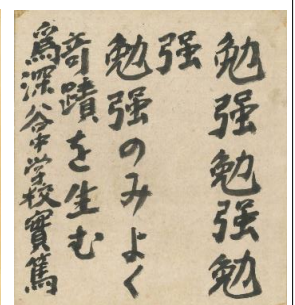 勉强勉强勉
强
勉强のみよく
奇蹟を生む
爲深谷中学校 實篤